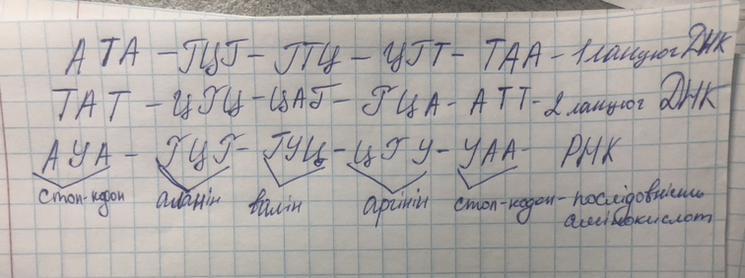 АТА - ГЦГ - ГТЦ - ЦГТ - ТАА - 1 ланцюг ДНК
ТАТ - ЦГЦ - ЦАГ - ГЦА - АТТ - 2 ланцюг ДНК
АУА - ГЦГ - ГУЦ - ЦГУ - УАА - РНК
стоп-кодон аланін валін аргінін стоп-кодон - послідовність
амінокислот